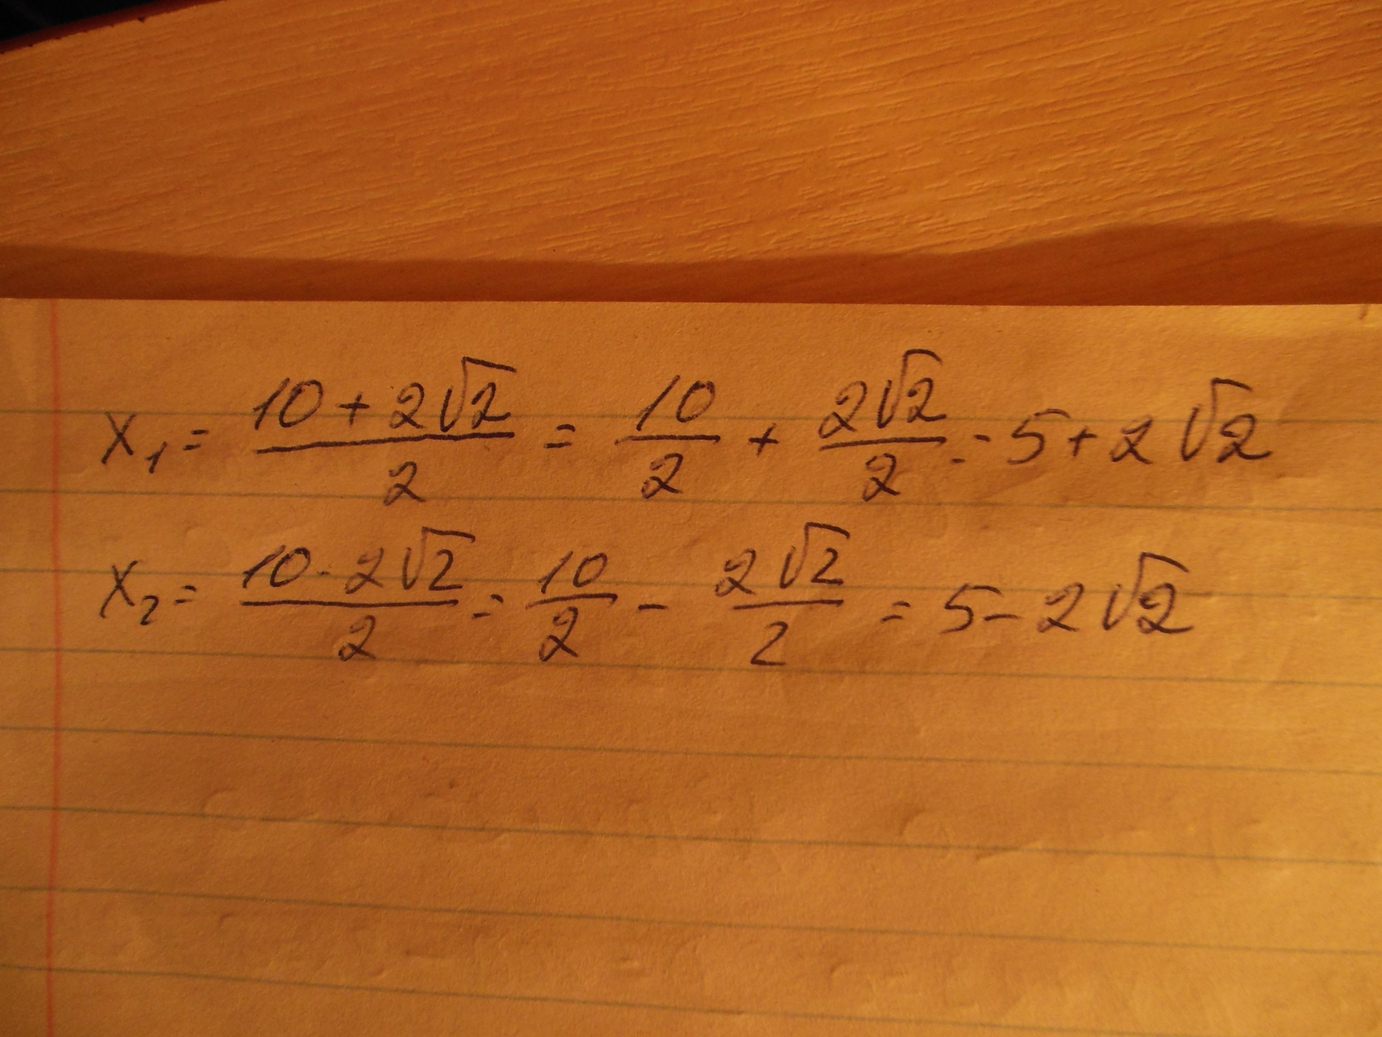 x₁ = (10 + 2√2)/2 = 10/2 + 2√2/2 = 5 + 2√2
x₂ = (10 - 2√2)/2 = 10/2 - 2√2/2 = 5 - 2√2